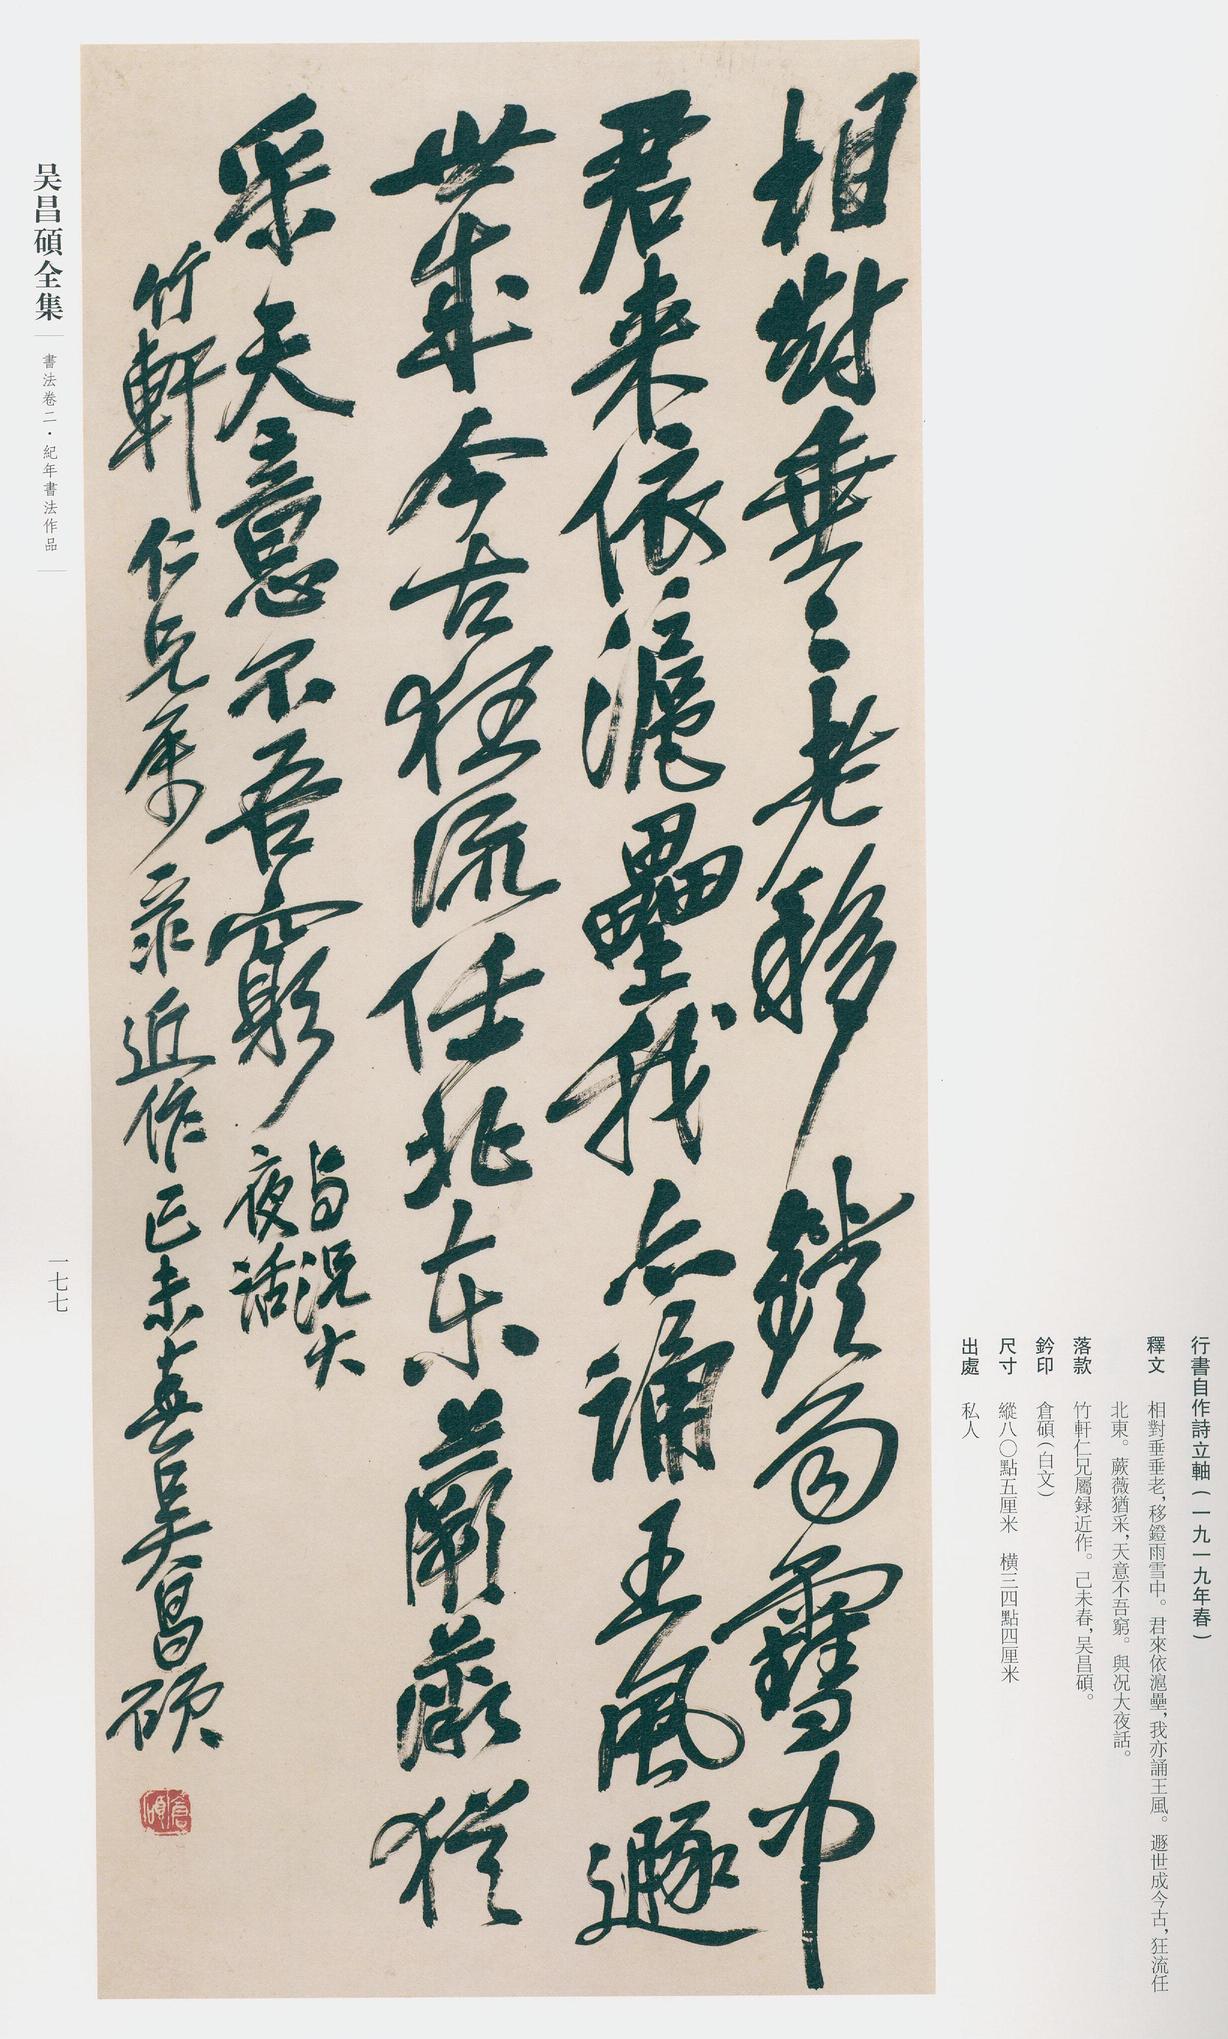 相對垂〻老移鐙雨雪中
君来依滬壘我亦誦王風遯
世成今古狂流任北东蕨薇猶
采天意不吾窮
与况大
夜話
竹軒仁兄属录近作己未春吴昌碩
倉碩
行書自作詩立軸（一九一九年春）
釋文 相對垂垂老，移鐙雨雪中。君來依滬壘，我亦誦王風。遯世成今古，狂流任
北東。蕨薇猶采，天意不吾窮。與况大夜話。
落款 竹軒仁兄屬録近作。己未春，吴昌碩。
鈐印 倉碩（白文）
尺寸 縱八〇點五厘米 橫三四點四厘米
出處 私人
吴昌碩全集
書法卷二·紀年書法作品
一七七